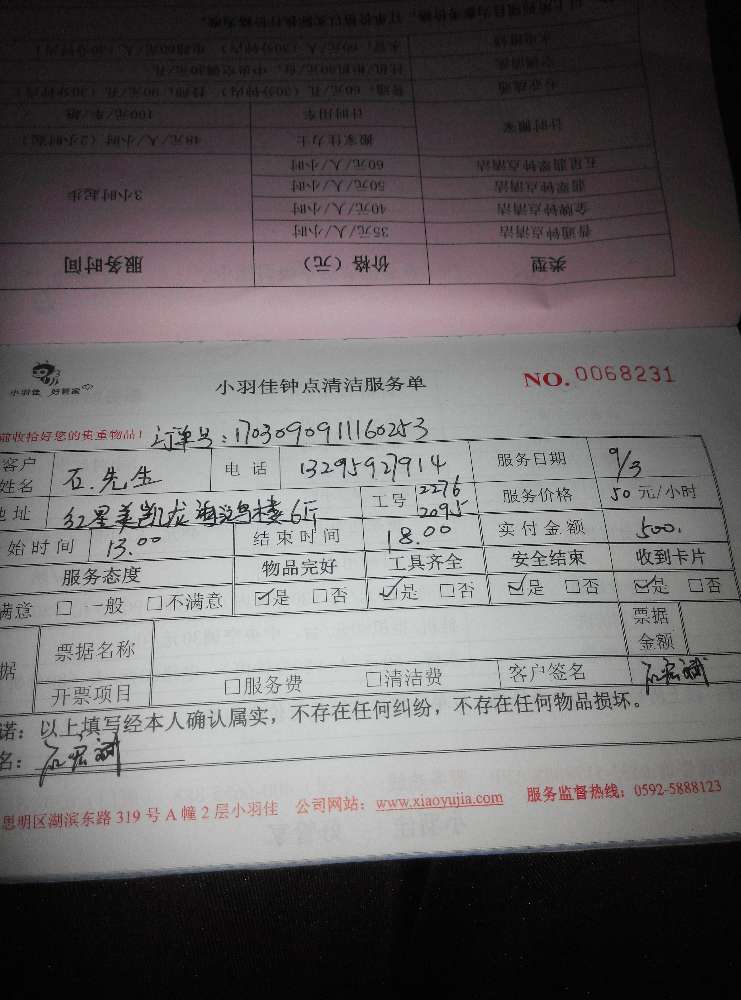 类型 价格（元） 服务时间
普通钟点清洁 35元/人/小时
金牌钟点清洁 40元/人/小时
翡翠钟点清洁 50元/人/小时 3小时起步
五星翡翠钟点清洁 60元/人/小时
计时搬家 搬家佳力士 48元/人/小时（2小时起）
计时用车 100元/车/趟
小羽佳 好管家
小羽佳钟点清洁服务单 NO. 0068231
前收拾好您的贵重物品！ 订单号：1703090911160253
客户姓名 石先生 电话 13295927914 服务日期 9/3
地址 红星美凯龙 楼6 工号 2276 2095 服务价格 50 元/小时
始时间 13.00 结束时间 18.00 实付金额 500.
服务态度 物品完好 工具齐全 安全结束 收到卡片
满意 □ 一般 □不满意 ☑是 □否 ☑是 □否 ☑是 □否 ☑是 □否
据 票据名称 票据金额
开票项目 □服务费 □清洁费 客户签名
诺：以上填写经本人确认属实，不存在任何纠纷，不存在任何物品损坏。
名：
思明区湖滨东路 319 号 A 幢 2 层小羽佳 公司网站：www.xiaoyujia.com 服务监督热线：0592-5888123